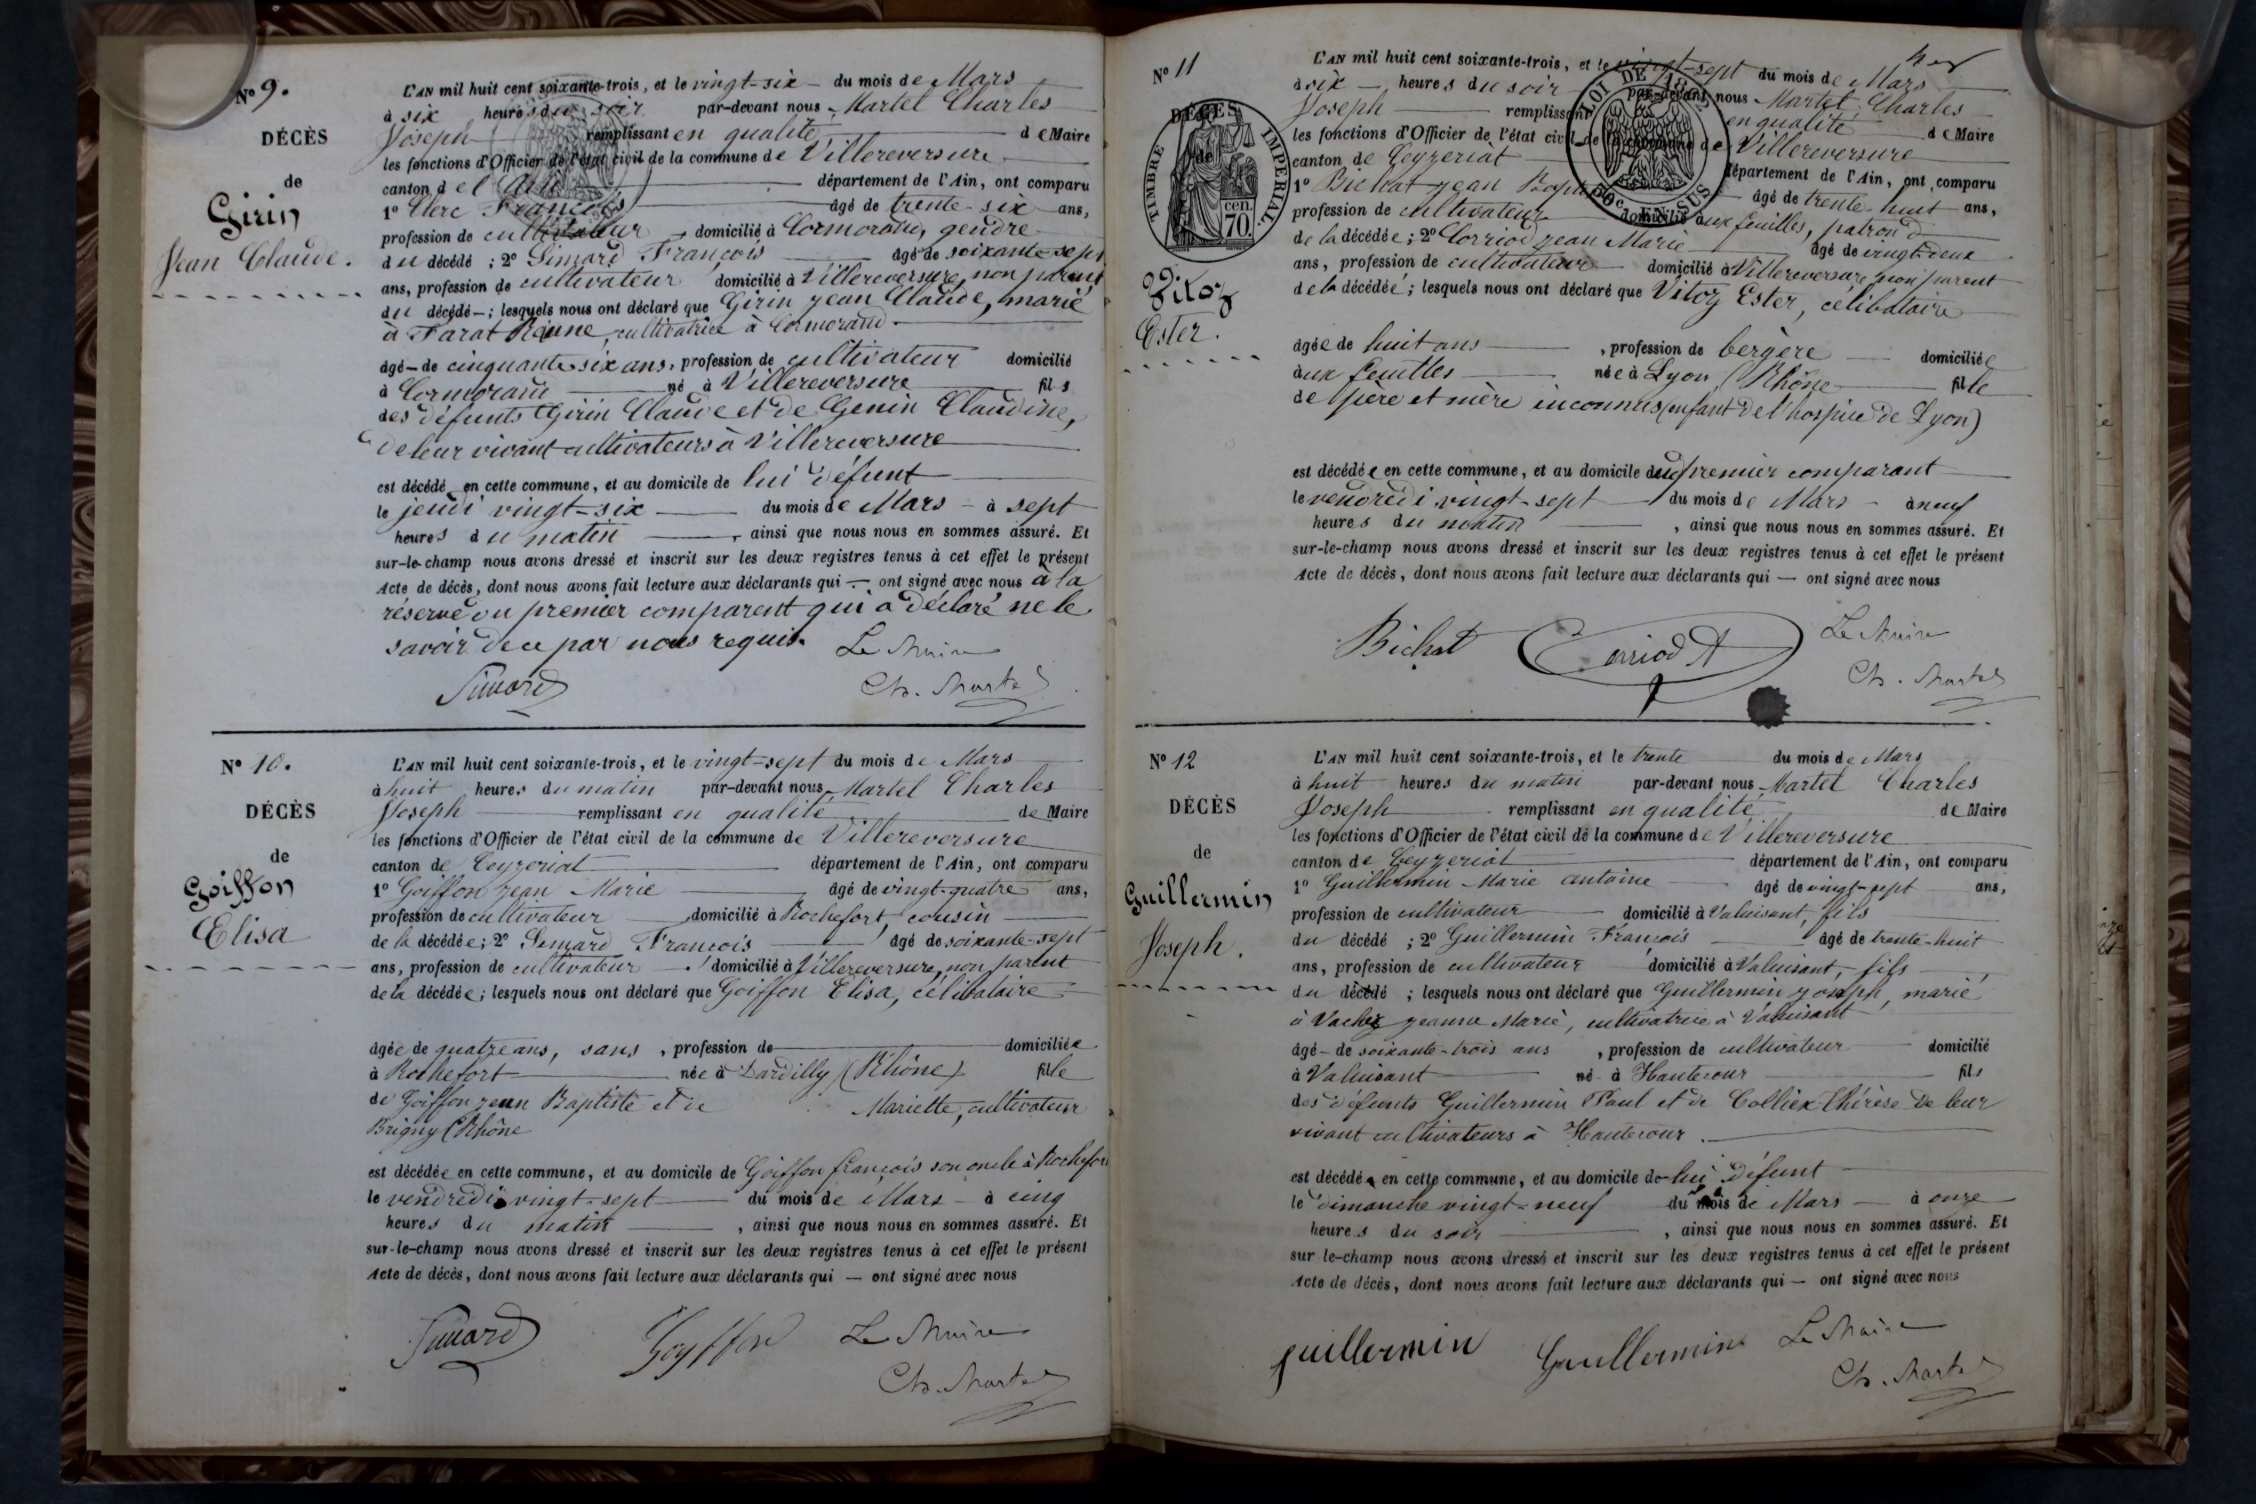 N° 9.
DÉCÈS
de
Girin
Jean Claude.
L'AN mil huit cent soixante-trois, et le vingt-six du mois de Mars
à six heures du soir par-devant nous Martel Charles
Joseph remplissant en qualité de Maire
les fonctions d'Officier de l'état civil de la commune de Villereversure
canton d el Ain département de l'Ain, ont comparu
1° Clerc François âgé de trente-six ans,
profession de cultivateur domicilié à Cormorand, gendre
du décédé ; 2° Simard François âgé de soixante-sept
ans, profession de cultivateur domicilié à Villereversure, non parent
du décédé ; lesquels nous ont déclaré que Girin Jean Claude, marié
à Farat cultivatrice à Cormorand
âgé de cinquante-six ans, profession de cultivateur domicilié
à Cormorand né à Villereversure fils
des défunts Girin Claude et de Genin Claudine,
de leur vivant cultivateurs à Villereversure
est décédé en cette commune, et au domicile de lui défunt
le jeudi vingt-six du mois de Mars à sept
heures du matin, ainsi que nous nous en sommes assuré. Et
sur-le-champ nous avons dressé et inscrit sur les deux registres tenus à cet effet le présent
Acte de décès, dont nous avons fait lecture aux déclarants qui — ont signé avec nous à la
réserve du premier comparent qui a déclaré ne le
savoir de ce par nous requis.
Le Maire
Simard
Ch. Martel
N° 10.
DÉCÈS
de
Goiffon
Elisa
L'AN mil huit cent soixante-trois, et le vingt-sept du mois de Mars
à huit heures du matin par-devant nous Martel Charles
Joseph remplissant en qualité de Maire
les fonctions d'Officier de l'état civil de la commune de Villereversure
canton de Ceyzeriat département de l'Ain, ont comparu
1° Goiffon Jean Marie âgé de vingt-quatre ans,
profession de cultivateur domicilié à Rochefort, cousin
de la décédée; 2° Simard François âgé de soixante-sept
ans, profession de cultivateur domicilié à Villereversure, non parent
de la décédée; lesquels nous ont déclaré que Goiffon Elisa, célibataire
âgée de quatre ans, sans, profession de domiciliée
à Rochefort née à Dardilly (Rhône) fille
de Goiffon Jean Baptiste et de Mariette, cultivateur
Brigny (Rhône
est décédée en cette commune, et au domicile de Goiffon françois son oncle à Rochefort
le vendredi vingt-sept du mois de Mars à cinq
heures du matin, ainsi que nous nous en sommes assuré. Et
sur-le-champ nous avons dressé et inscrit sur les deux registres tenus à cet effet le présent
Acte de décès, dont nous avons fait lecture aux déclarants qui — ont signé avec nous
Simard Goyffon Le Maire
Ch. Martel
N° 11
DÉCÈS
de
TIMBRE IMPERIAL
cen
70.
LOI DE
EN SUS
Vitoz
Ester.
L'AN mil huit cent soixante-trois, et le vingt-sept du mois de Mars
à six heures du soir par-devant nous Martel Charles
Joseph remplissant en qualité de Maire
les fonctions d'Officier de l'état civil de la commune de Villereversure
canton de Ceyzeriat département de l'Ain, ont comparu
1° Bichat Jean âgé de trente-huit ans,
profession de cultivateur domicilié aux feuilles, patron
de la décédée ; 2° Corriod Jean Marie âgé de vingt-deux
ans, profession de cultivateur domicilié à Villereversure non parent
de la décédée ; lesquels nous ont déclaré que Vitoz Ester, célibataire
âgée de huit ans, profession de bergère domiciliée
aux feuilles née à Lyon (Rhône fille
de père et mère inconnus (enfant de l'hospice de Lyon)
est décédée en cette commune, et au domicile du premier comparant
le vendredi vingt-sept du mois de Mars à neuf
heures du matin, ainsi que nous nous en sommes assuré. Et
sur-le-champ nous avons dressé et inscrit sur les deux registres tenus à cet effet le présent
Acte de décès, dont nous avons fait lecture aux déclarants qui — ont signé avec nous
Bichat Corriod Le Maire
Ch. Martel
N° 12
DÉCÈS
de
Guillermin
Joseph.
L'AN mil huit cent soixante-trois, et le trente du mois de Mars
à huit heures du matin par-devant nous Martel Charles
Joseph remplissant en qualité de Maire
les fonctions d'Officier de l'état civil de la commune de Villereversure
canton de Ceyzeriat département de l'Ain, ont comparu
1° Guillermin Marie antoine âgé de vingt-sept ans,
profession de cultivateur domicilié à Valuisant, fils
du décédé ; 2° Guillermin François âgé de trente-huit
ans, profession de cultivateur domicilié à Valuisant, fils
du décédé ; lesquels nous ont déclaré que Guillermin Joseph, marié
à Jeanne Marie, cultivatrice à Valuisant
âgé de soixante-trois ans, profession de cultivateur domicilié
à Valuisant né à Hautecour fils
des défunts Guillermin Paul et de Collier Thérèse De leur
vivant cultivateurs à Hautecour.
est décédé en cette commune, et au domicile de lui défunt
le dimanche vingt-neuf du mois de Mars à onze
heures du soir, ainsi que nous nous en sommes assuré. Et
sur le-champ nous avons dressé et inscrit sur les deux registres tenus à cet effet le présent
Acte de décès, dont nous avons fait lecture aux déclarants qui — ont signé avec nous
guillermin Guillermin Le Maire
Ch. Martel